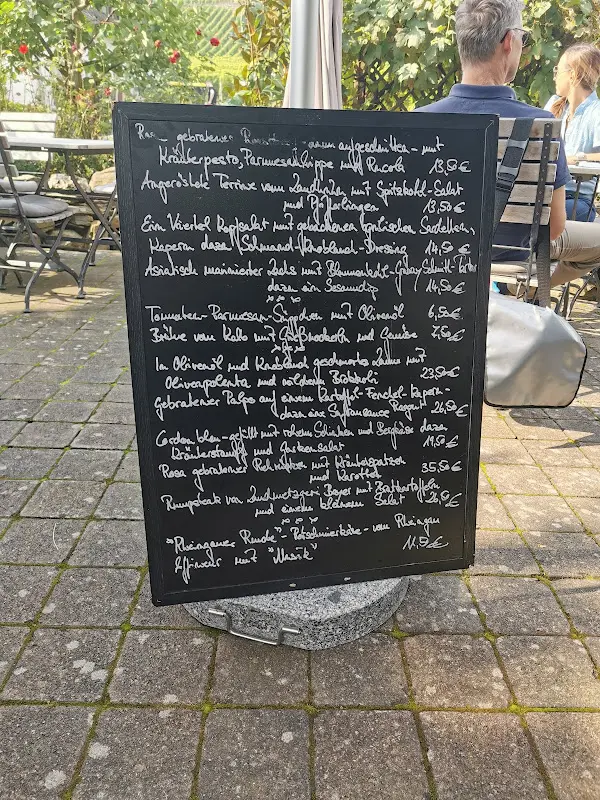 gebratenes aufgeschnitten - mit
Kräuterpesto, Parmesanhippe und Rucola 13,50€
Angeröstete Terrine vom mit Spitzkohl-Salat
und Pfifferlingen 13,50€
Ein Viertel Kopfsalat mit gebackenen Sardellen,
Kapern dazu Schmand-Knoblauch-Dressing 14,50€
Asiatisch marinierter Lachs mit Blumenkohl-
dazu ein Sesamdip 14,50€
xxx
Tomaten-Parmesan-Süppchen mit Olivenöl 6,50€
Brühe vom Kalb mit Grießnockerln und Gemüse 7,50€
xxx
In Olivenöl und Knoblauch geschmortes Lamm mit
Olivenpolenta und wildem Brokkoli 23,50€
Gebratener Pulpo auf einem Kartoffel-Fenchel-Kapern-
dazu eine 26,50€
Cordon bleu-gefüllt mit rohem Schinken und Bergkäse dazu
Kräuterstampf und Gurkensalat 19,50€
Rosa gebratener Rehrücken mit Kräuterspatzen
und Karotten 35,50€
Rumpsteak von Landmetzgerei Beyer mit Bratkartoffeln
und einem kleinem Salat 26,50€
xxx
"Rheingauer Runde"-Rotschmierkäse-vom Rheingau
Affineur mit "Musik" 11,50€